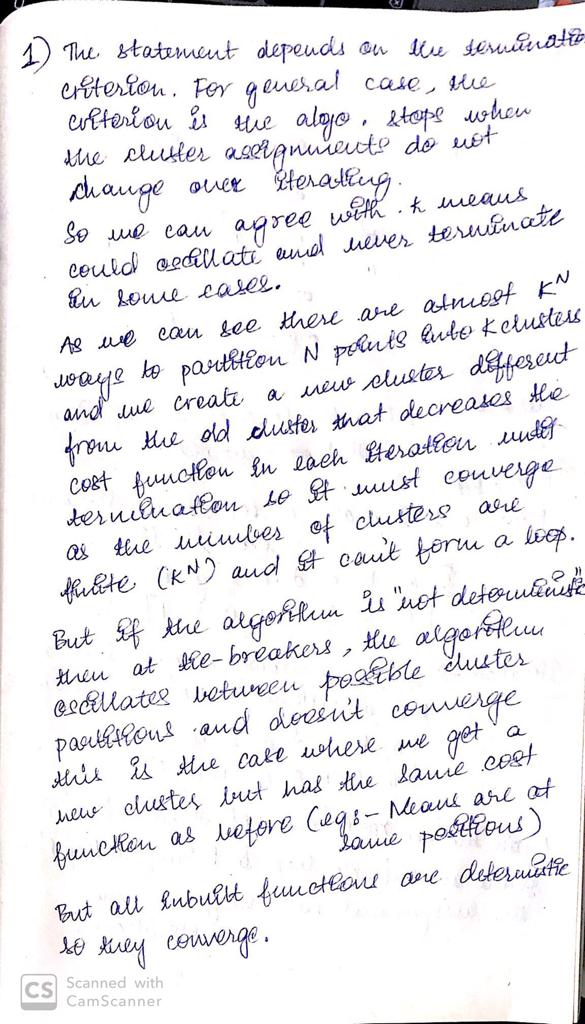 1) The statement depends on the terminate
criterion. For general case, the
criterion is the algo. stops when
the cluster assignments do not
change over iterating.
So we can agree with k means
could oscillate and never terminate
in some cases.
As we can see there are atmost K^N
ways to partition N points into K clusters
and we create a new cluster different
from the old cluster that decreases the
cost function in each iteration until
termination so it must converge
as the number of clusters are
finite (K^N) and it can't form a loop.
But if the algorithm is "not deterministic"
then at tie-breakers, the algorithm
oscillates between possible cluster
partitions and doesn't converge
this is the case where we get a
new cluster but has the same cost
function as before (eg:- Means are at
same positions)
But all inbuilt functions are deterministic
so they converge.
CS Scanned with
CamScanner